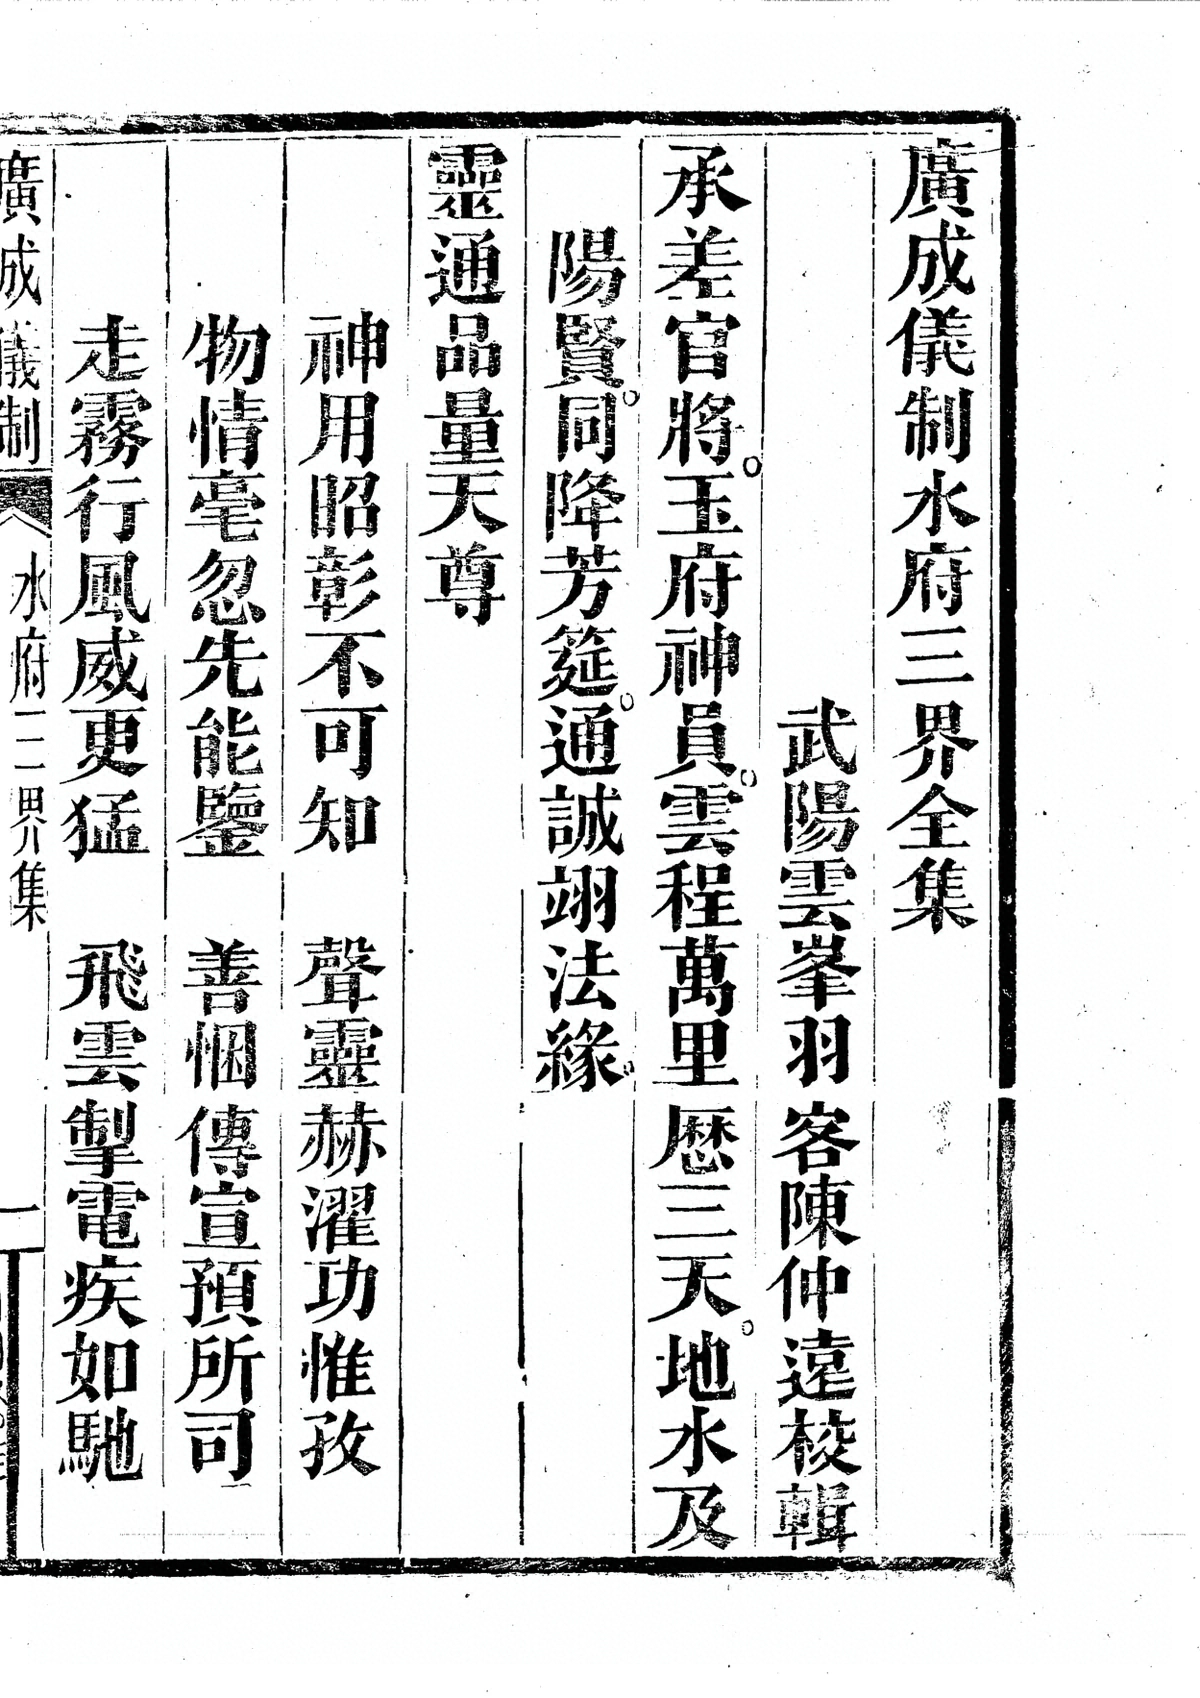 廣成儀制水府三界全集
武陽雲峯羽客陳仲遠校輯
承差官將。玉府神員。雲程萬里歷三天。地水及
陽賢。同降芳筵。通誠翊法緣。
靈通品量天尊
神用昭彰不可知　聲靈赫濯功惟孜
物情毫忽先能鑒　善悃傳宣預所司
走霧行風威更猛　飛雲掣電疾如馳
廣成儀制　水府三界集　一